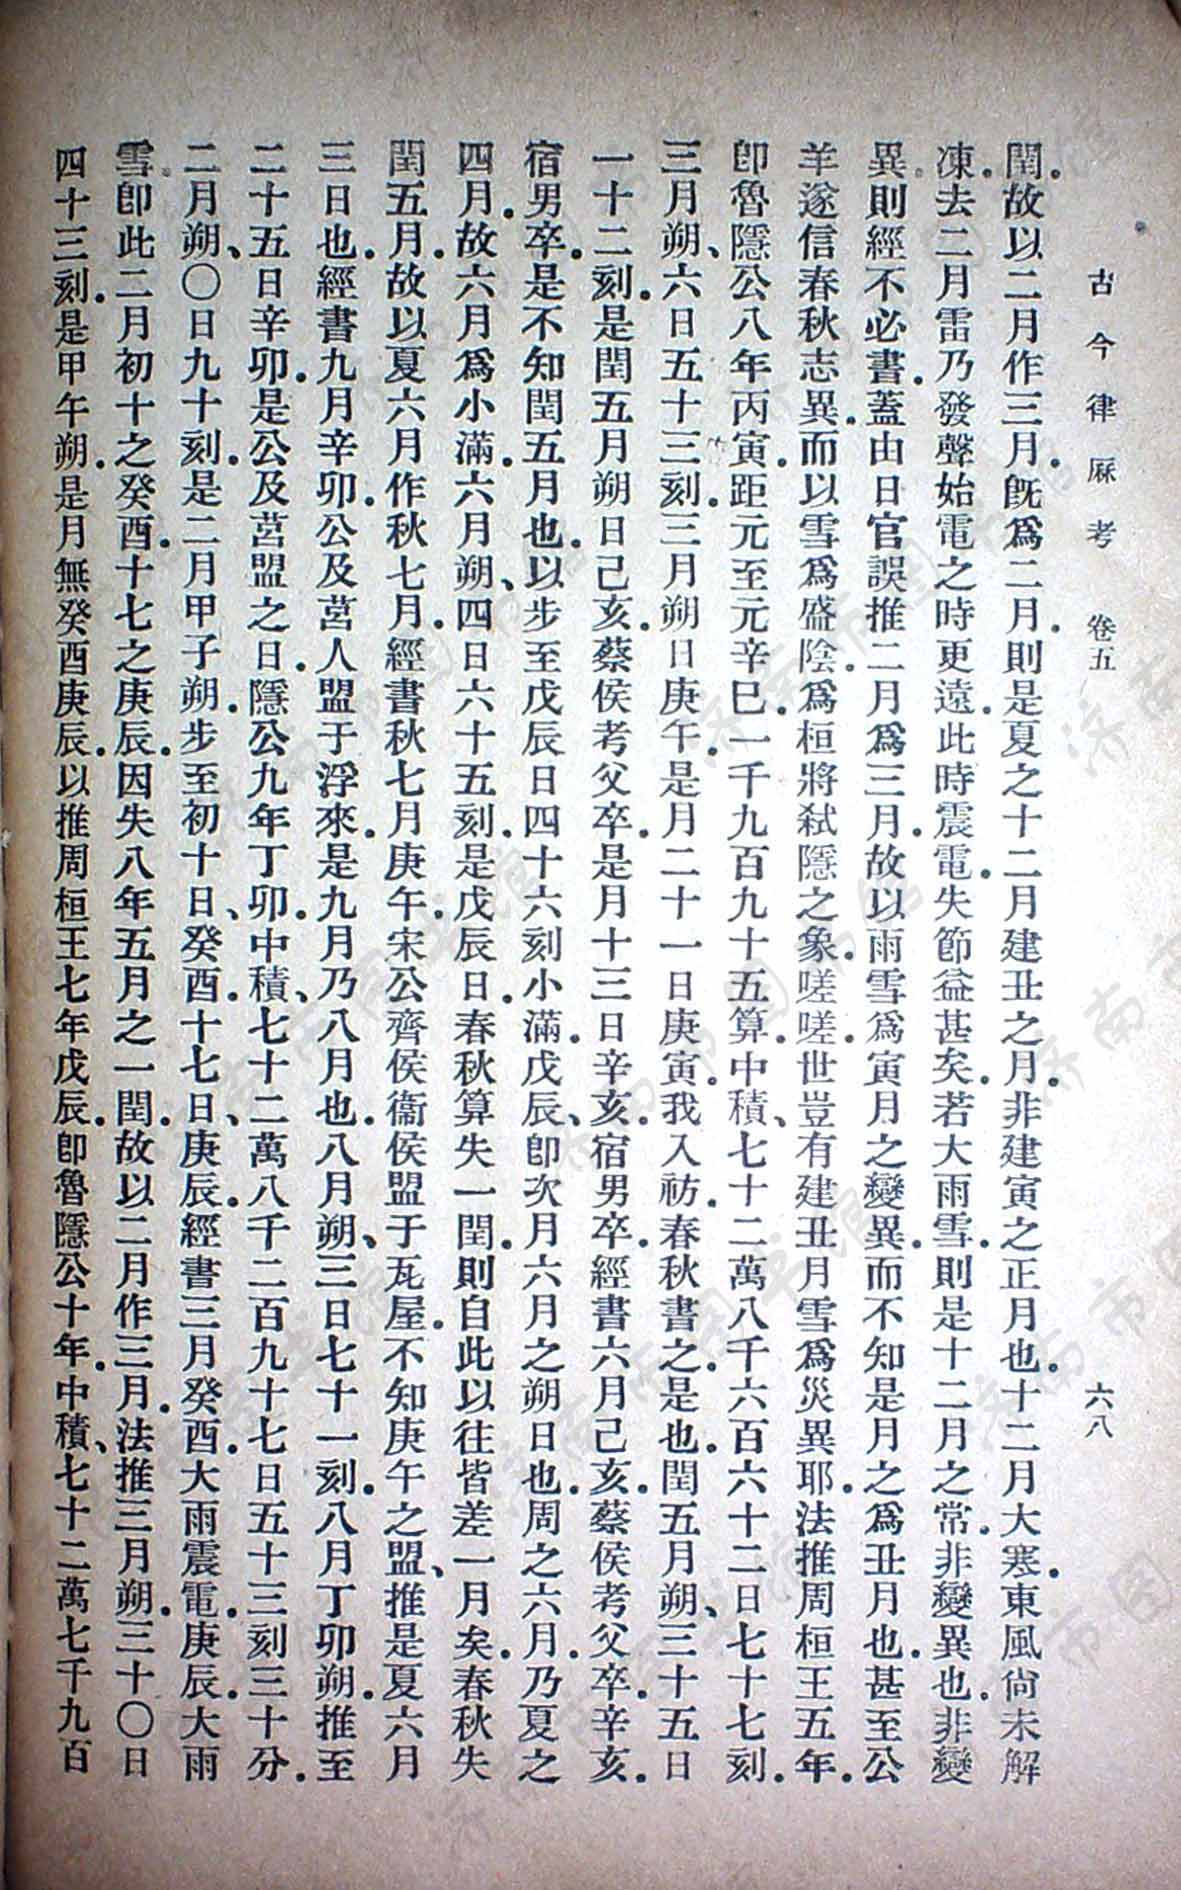 古今律厤考 卷五 六八
閏.故以二月作三月.旣爲二月.則是夏之十二月建丑之月.非建寅之正月也.十二月大寒.東風尙未解
凍.去二月雷乃發聲始電之時更遠.此時震電.失節益甚矣.若大雨雪.則是十二月之常.非變異也.非變
異則經不必書.蓋由日官誤推二月爲三月.故以雨雪爲寅月之變異.而不知是月之爲丑月也.甚至公
羊遂信春秋志異.而以雪爲盛陰.爲桓將弒隱之象.嗟嗟.世豈有建丑月雪爲災異耶.法推周桓王五年.
卽魯隱公八年丙寅.距元至元辛巳.一千九百九十五算.中積、七十二萬八千六百六十二日七十七刻.
三月朔、六日五十三刻.三月朔日庚午.是月二十一日庚寅.我入祊.春秋書之.是也.閏五月朔、三十五日
一十二刻.是閏五月朔日己亥.蔡侯考父卒.是月十三日辛亥.宿男卒.經書六月己亥.蔡侯考父卒.辛亥.
宿男卒.是不知閏五月也.以步至戊辰日四十六刻小滿.戊辰、卽次月六月之朔日也.周之六月.乃夏之
四月.故六月爲小滿.六月朔、四日六十五刻.是戊辰日.春秋算失一閏.則自此以往皆差一月矣.春秋失
閏五月.故以夏六月作秋七月.經書秋七月庚午.宋公齊侯衞侯盟于瓦屋.不知庚午之盟、推是夏六月
三日也.經書九月辛卯.公及莒人盟于浮來.是九月乃八月也.八月朔、三日七十一刻.八月丁卯朔.推至
二十五日辛卯.是公及莒盟之日.隱公九年丁卯.中積、七十二萬八千二百九十七日五十三刻三十分.
二月朔、〇日九十刻.是二月甲子朔.步至初十日、癸酉.十七日、庚辰.經書三月癸酉.大雨震電.庚辰.大雨
雪.卽此二月初十之癸酉.十七之庚辰.因失八年五月之一閏.故以二月作三月.法推三月朔.三十〇日
四十三刻.是甲午朔.是月無癸酉庚辰.以推周桓王七年戊辰.卽魯隱公十年.中積、七十二萬七千九百